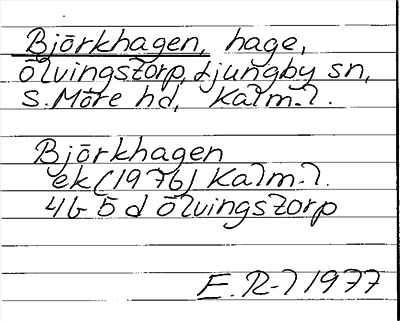 Björkhagen, hage,
Ölvingstorp, Ljungby sn,
S. Möre hd, Kalm. l.
Björkhagen
ek (1976) Kalm. l.
4G 5 d Ölvingstorp
E. R-l 1977